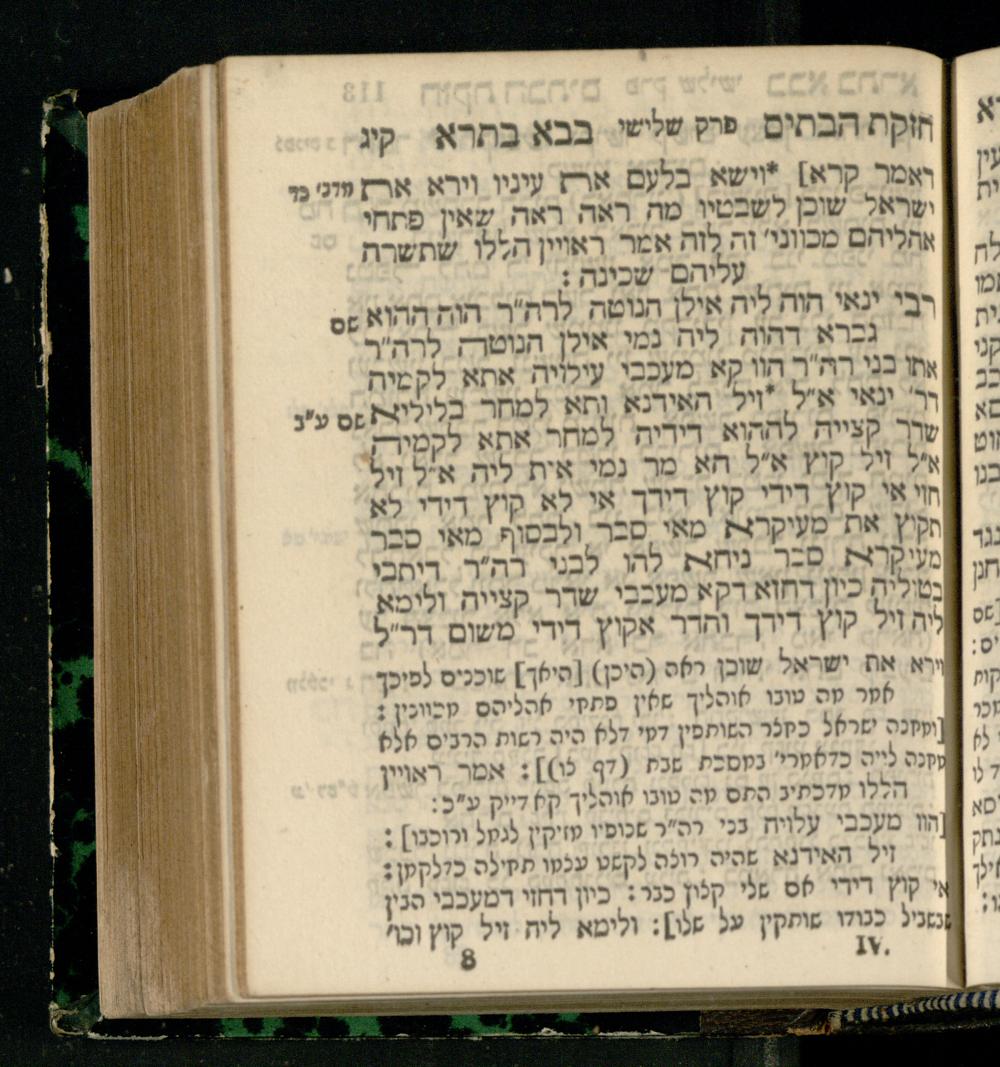 חזקת הבתים פרק שלישי בבא בתרא קיג
ואמר קרא] *וישא בלעם את עיניו וירא את מדבי כד
ישראל שוכן לשבטיו מה ראה ראה שאין פתחי
אהליהם מכווני' זה לזה אמר ראויין הללו שתשרה
עליהם שכינה :
רבי ינאי הוה ליה אילן הנוטה לרה"ר הוה ההוא שם
גברא דהוה ליה נמי אילן הנוטה לרה"ר
אתו בני רה"ר הוו קא מעכבי עילויה אתא לקמיה
דר' ינאי א"ל *זיל האידנא ותא למחר בליליא שם ע"ב
שדר קצייה לההוא דידיה למחר אתא לקמיה
א"ל זיל קוץ א"ל הא מר נמי אית ליה א"ל זיל
חזי אי קוץ דידי קוץ דידך אי לא קוץ דידי לא
תקוץ את מעיקרא מאי סבר ולבסוף מאי סבר
מעיקרא סבר ניחא להו לבני רה"ר דיתבי
בטוליה כיון דחזא דקא מעכבי שדר קצייה ולימא
ליה זיל קוץ דידך והדר אקוץ דידי משום דר"ל
וירא את ישראל שוכן ראה (היכן) [היאך] שוכנים לפיכך
אמר מה טובו אוהליך שאין פתחי אהליהם מכוונין :
[ומקנה ישראל כחצר השותפין דמי דלא היה רשות הרבים אלא
מקנה לייה כדאמרי' במסכת שבת (דף לו)] : אמר ראויין
הללו מדכתיב התם מה טובו אוהליך קא דייק ע"כ :
[הוו מעכבי עלויה בני רה"ר שנופיו מזיקין לגמל ורוכבו] :
זיל האידנא שהיה רוצה לקשט עצמו תחילה כדלקמן :
אי קוץ דידי אם שלי קצוץ כבר : כיון דחזי דמעכבי הבין
שבשביל כבודו שותקין על שלו] : ולימא ליה זיל קוץ וכו'
8 IV.